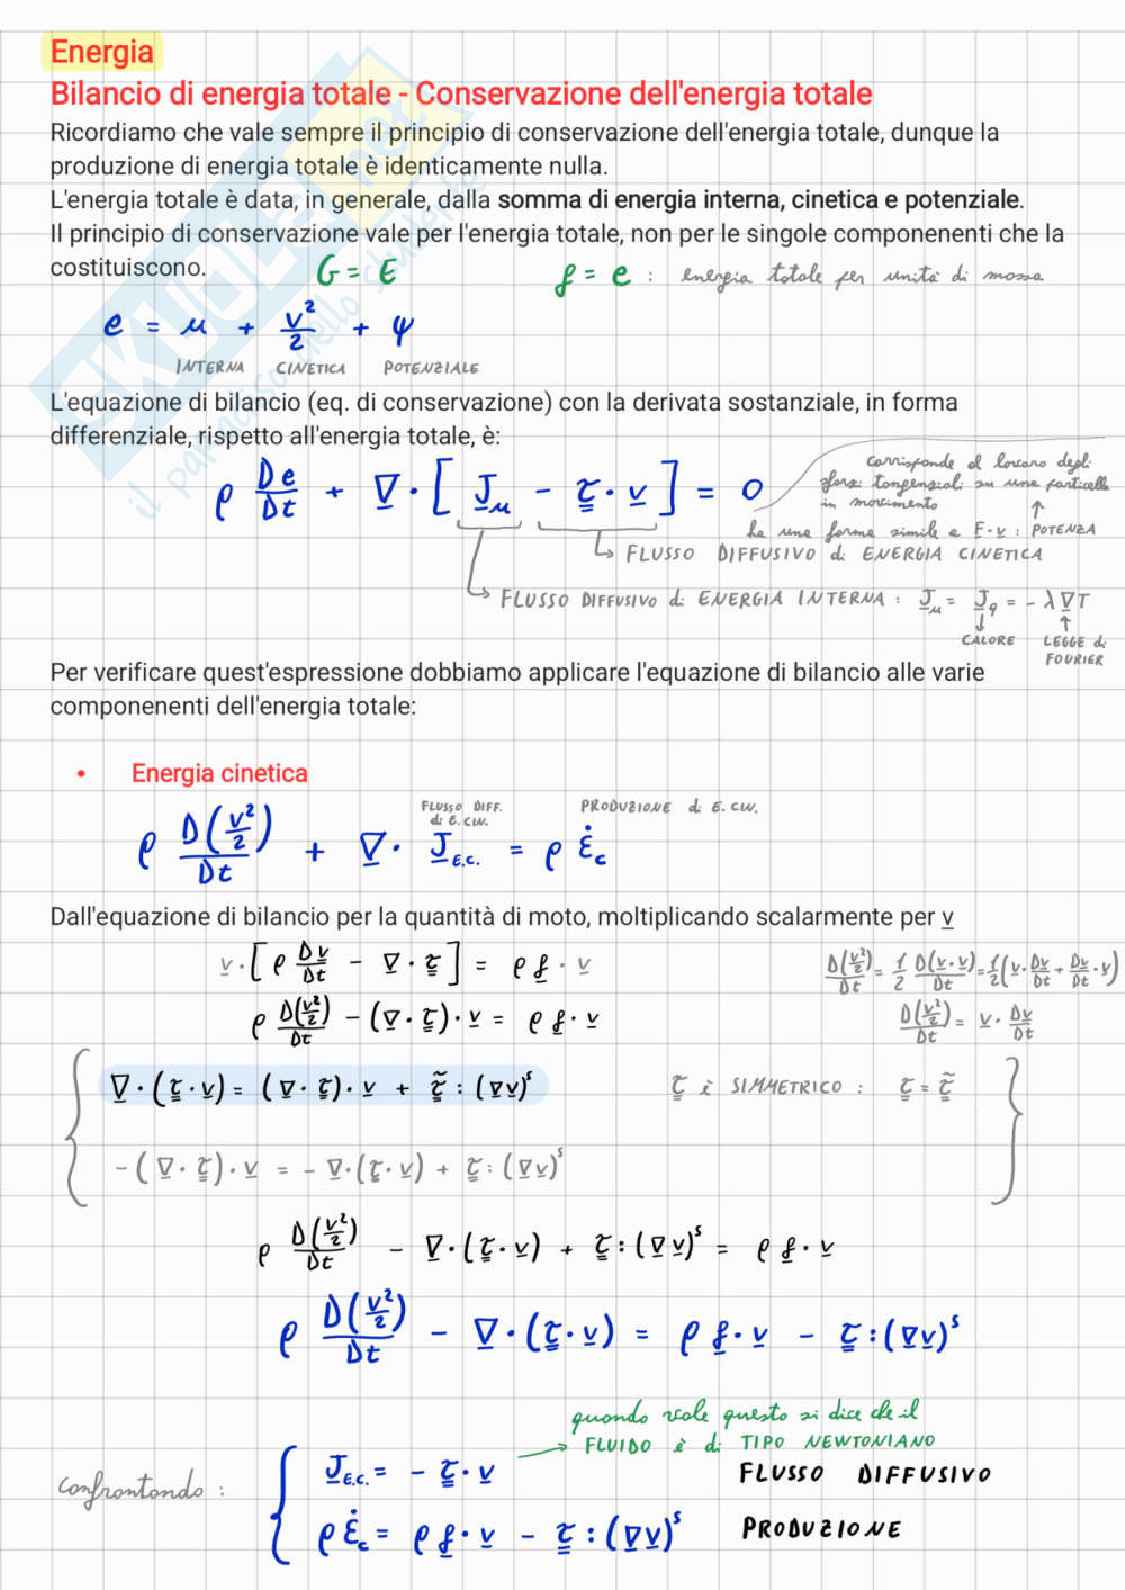 Energia
Bilancio di energia totale - Conservazione dell'energia totale
Ricordiamo che vale sempre il principio di conservazione dell'energia totale, dunque la
produzione di energia totale è identicamente nulla.
L'energia totale è data, in generale, dalla somma di energia interna, cinetica e potenziale.
Il principio di conservazione vale per l'energia totale, non per le singole componenenti che la
costituiscono. G = E f = e : energia totale per unità di massa
e = u + v²/2 + ψ
INTERNA CINETICA POTENZIALE
L'equazione di bilancio (eq. di conservazione) con la derivata sostanziale, in forma
differenziale, rispetto all'energia totale, è:
ρ De/Dt + ∇ · [ J_u - τ · v ] = 0
corrisponde al lavoro degli
sforzi tangenziali su una particella
in movimento
ha una forma simile a F · v : POTENZA
FLUSSO DIFFUSIVO di ENERGIA CINETICA
FLUSSO DIFFUSIVO di ENERGIA INTERNA : J_u = J_q = - λ∇T
CALORE LEGGE di FOURIER
Per verificare quest'espressione dobbiamo applicare l'equazione di bilancio alle varie
componenenti dell'energia totale:
• Energia cinetica
FLUSSO DIFF. di E. CIN. PRODUZIONE di E. CIN.
ρ D(v²/2)/Dt + ∇ · J_E.C. = ρ Ė_c
Dall'equazione di bilancio per la quantità di moto, moltiplicando scalarmente per v
v · [ρ Dv/Dt - ∇ · τ] = ρ f · v
D(v²/2)/Dt = 1/2 D(v · v)/Dt = 1/2(v · Dv/Dt + Dv/Dt · v)
ρ D(v²/2)/Dt - (∇ · τ) · v = ρ f · v
D(v²/2)/Dt = v · Dv/Dt
∇ · (τ · v) = (∇ · τ) · v + τ̃ : (∇v)ˢ τ È SIMMETRICO : τ = τ̃
- (∇ · τ) · v = - ∇ · (τ · v) + τ : (∇v)ˢ
ρ D(v²/2)/Dt - ∇ · (τ · v) + τ : (∇v)ˢ = ρ f · v
ρ D(v²/2)/Dt - ∇ · (τ · v) = ρ f · v - τ : (∇v)ˢ
quando vale questo si dice che il
FLUIDO è di TIPO NEWTONIANO
confrontando :
J_E.C. = - τ · v FLUSSO DIFFUSIVO
ρ Ė_c = ρ f · v - τ : (∇v)ˢ PRODUZIONE
SKUOLA.net
il paradiso dello studente